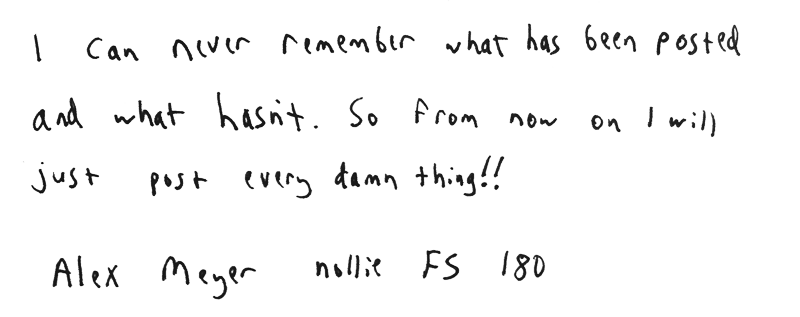 I can never remember what has been posted
and what hasn't. So from now on I will
just post every damn thing!!
Alex Meyer nollie FS 180